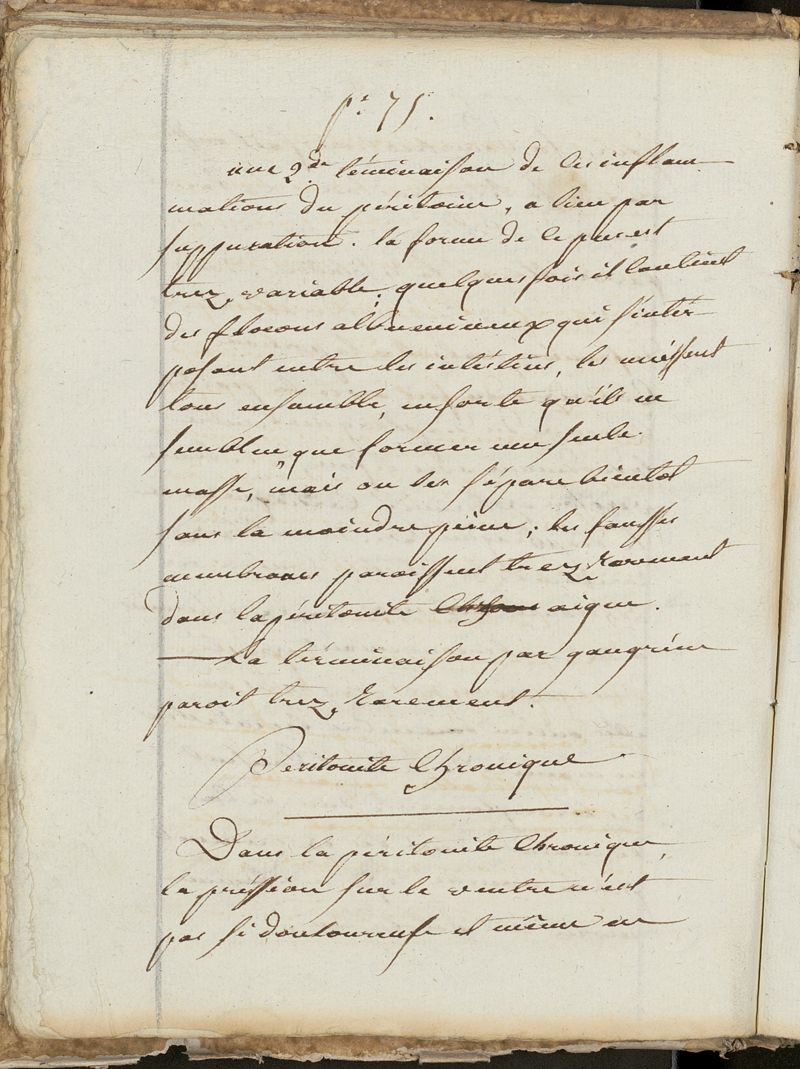 p.e 75.
une 2.de términaison de les inflam
mations du péritoine, a lieu par
suppuration. la forme de ce pus est
trez, variable; quelques fois il contient
des flocons albumineux qui s'inter
posant entre les intéstins, les unissent
tous ensemble, ensorte qu'ils ne
semblent que former une seule
masse, mais on les sépare bientot
sans la moindre peine; les fausses
membranes paroissent trez rarement
dans la péritonite aigue.
— La términaison par gangréne
paroit trez, rarement.
Peritonite Chronique
Dans la péritonite Chronique,
la préssion sur le ventre n'est
pas si douloureuse et même on